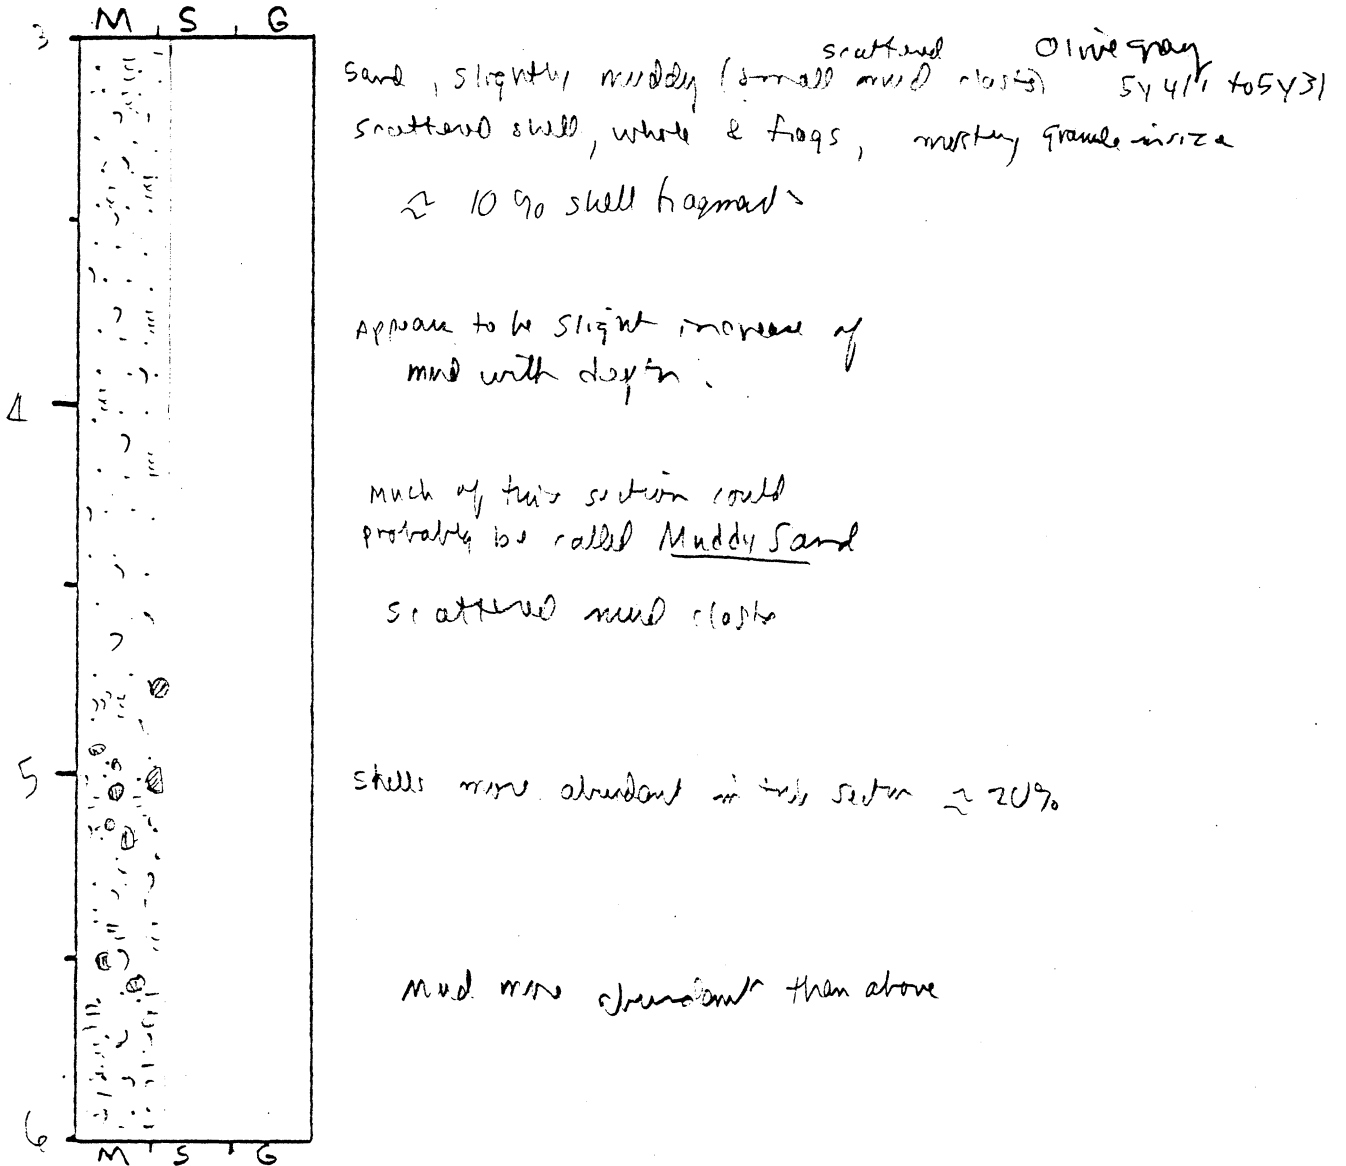 M S G
3
scattered Olive gray
Sand, slightly muddy (small mud clasts) 5Y 4/1 to 5Y 3/
scattered shell, whole & frags, mostly granule in size
≈ 10% shell fragments
Appears to be slight increase of
mud with depth.
4
Much of this section could
probably be called Muddy Sand
scattered mud clasts
5
Shells more abundant in this section ≈ 20%
Mud more abundant than above
6
M S G